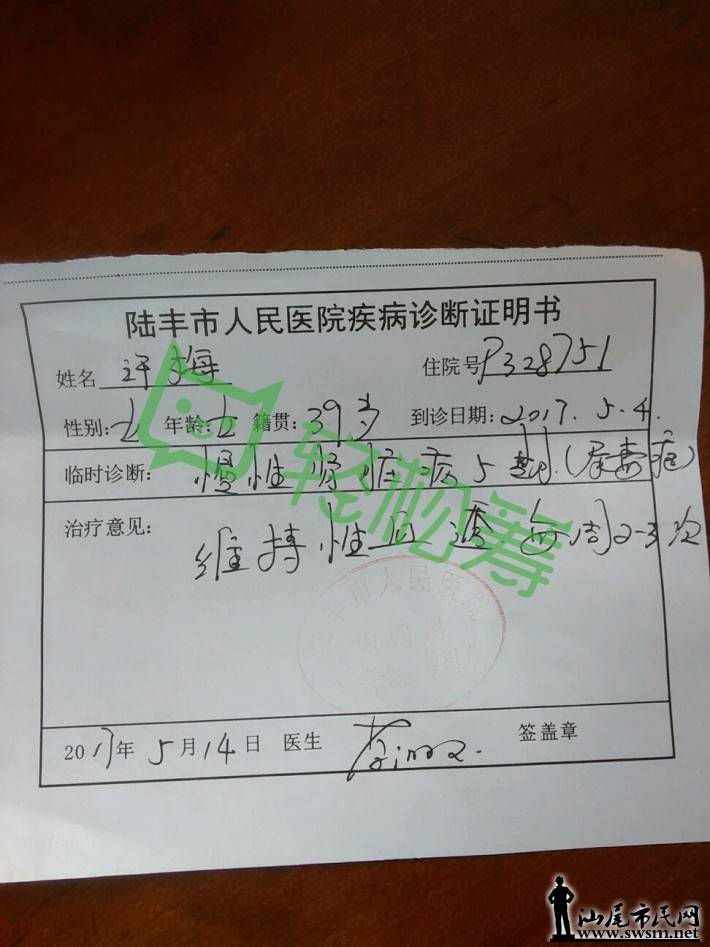 陆丰市人民医院疾病诊断证明书
姓名 许梅 住院号 P328751
性别: 女 年龄: 籍贯: 39岁 到诊日期: 2017.5.4.
临时诊断: 慢性肾脏病5期(尿毒症)
治疗意见:
维持性血透每周2-3次
轻松筹
市人民医院
2017年5月14日 医生 签盖章
汕尾市民网
www.swsm.net